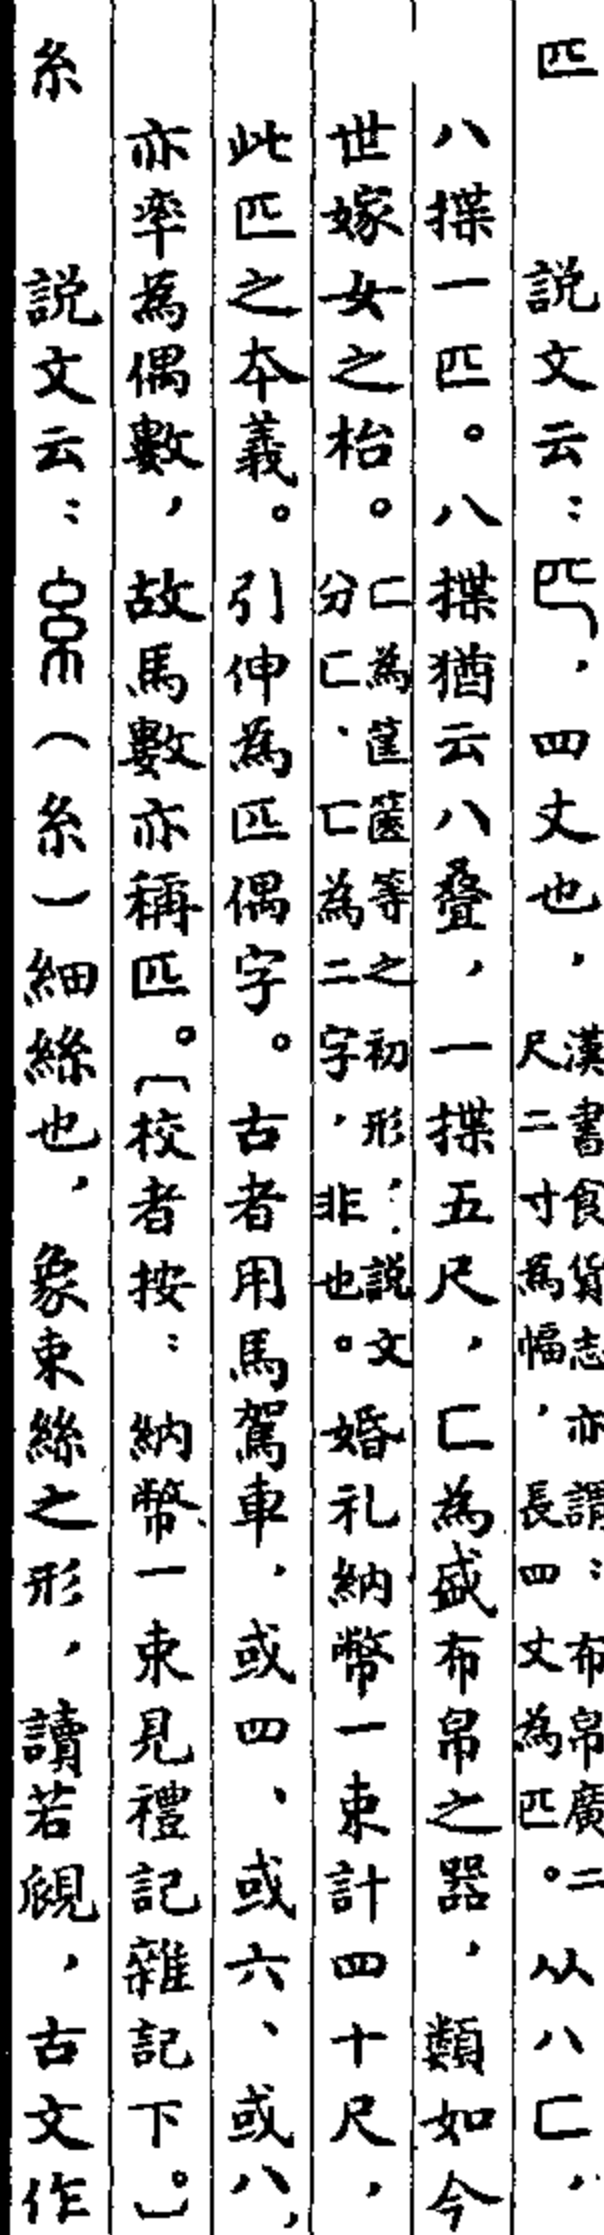 匹　説文云：𠥼，四丈也，漢書食貨志亦謂：布帛廣二尺二寸為幅，長四丈為匹。从八匸，
八揲一匹。八揲猶云八疊，一揲五尺，匸為盛布帛之器，類如今
世嫁女之枱。匸為筐篋等之初形；説文分匸、匚為二字，非也。婚礼納幣一束計四十尺，
此匹之本義。引伸為匹偶字。古者用馬駕車，或四、或六、或八，
亦率為偶數，故馬數亦稱匹。〔校者按：納幣一束見禮記雜記下。〕
糸　説文云：（糸）細絲也，象束絲之形，讀若覛，古文作